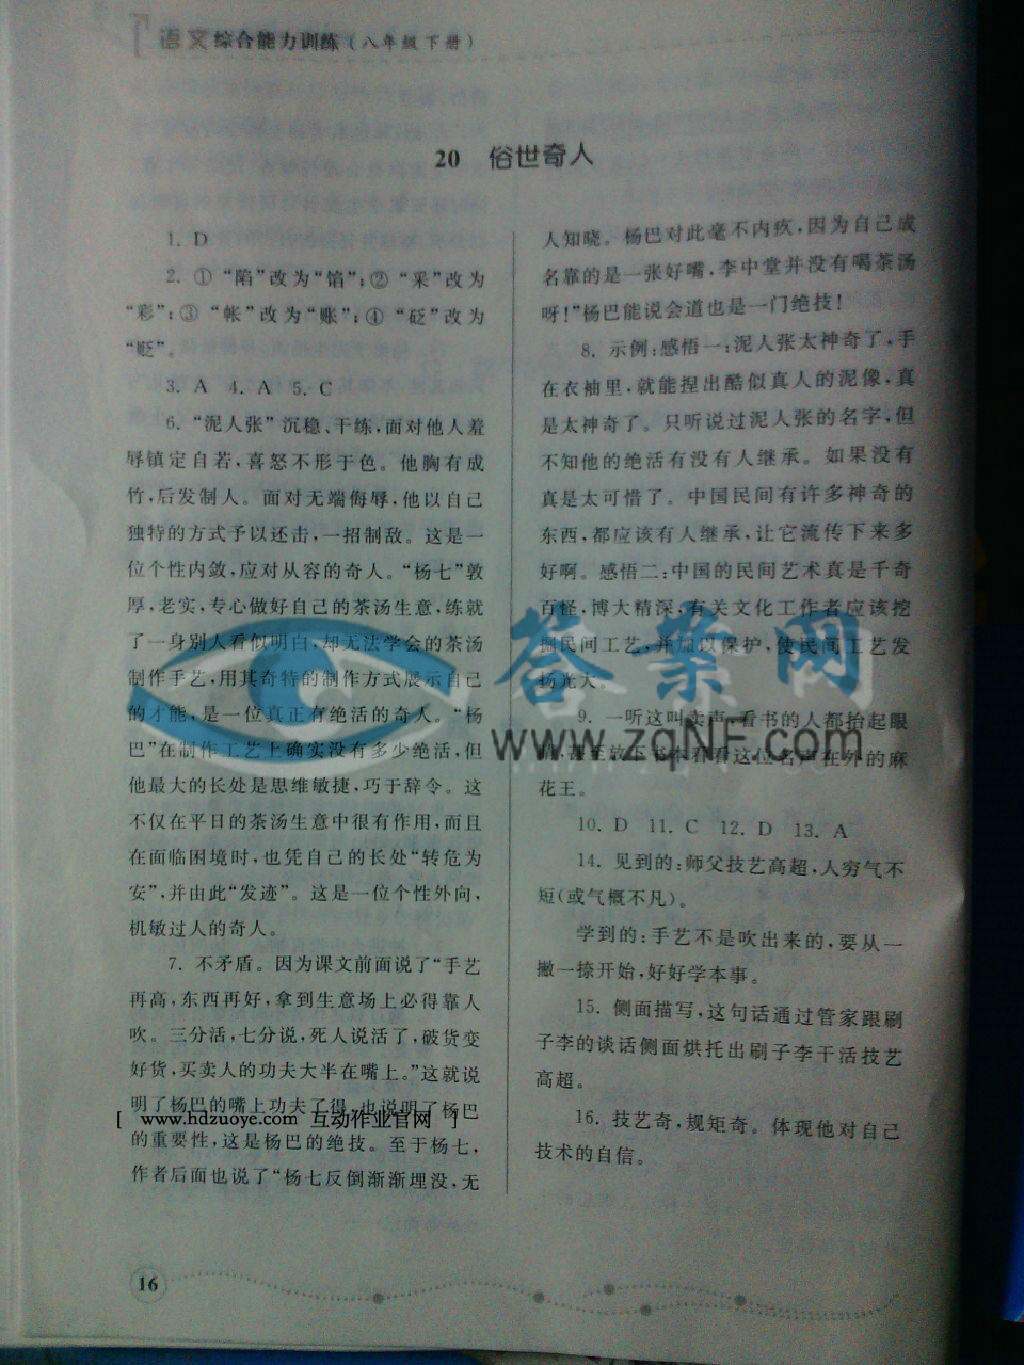 语文 综合能力训练(八年级下册)
20 俗世奇人
1. D
2. ①“陷”改为“馅”;②“采”改为
“彩”;③“帐”改为“账”;④“砭”改为
“贬”。
3. A 4. A 5. C
6. “泥人张”沉稳、干练,面对他人羞
辱镇定自若,喜怒不形于色。他胸有成
竹,后发制人。面对无端侮辱,他以自己
独特的方式予以还击,一招制敌。这是一
位个性内敛,应对从容的奇人。“杨七”敦
厚,老实,专心做好自己的茶汤生意,练就
了一身别人看似明白,却无法学会的茶汤
制作手艺,用其奇特的制作方式展示自己
的才能,是一位真正有绝活的奇人。“杨
巴”在制作工艺上确实没有多少绝活,但
他最大的长处是思维敏捷,巧于辞令。这
不仅在平日的茶汤生意中很有作用,而且
在面临困境时,也凭自己的长处“转危为
安”,并由此“发迹”。这是一位个性外向,
机敏过人的奇人。
7. 不矛盾。因为课文前面说了“手艺
再高,东西再好,拿到生意场上必得靠人
吹。三分活,七分说,死人说活了,破货变
好货,买卖人的功夫大半在嘴上。”这就说
明了杨巴的嘴上功夫了得,也说明了杨巴
[ www.hdzuoye.com 互动作业官网 ]
的重要性,这是杨巴的绝技。至于杨七,
作者后面也说了“杨七反倒渐渐埋没,无
人知晓。杨巴对此毫不内疚,因为自己成
名靠的是一张好嘴,李中堂并没有喝茶汤
呀!”杨巴能说会道也是一门绝技!
8. 示例:感悟一:泥人张太神奇了,手
在衣袖里,就能捏出酷似真人的泥像,真
是太神奇了。只听说过泥人张的名字,但
不知他的绝活有没有人继承。如果没有
真是太可惜了。中国民间有许多神奇的
东西,都应该有人继承,让它流传下来多
好啊。感悟二:中国的民间艺术真是千奇
百怪,博大精深,有关文化工作者应该挖
掘民间工艺,并加以保护,使民间工艺发
扬光大。
9. 一听这叫卖声,看书的人都抬起眼
,甚至放下书本看看这位名声在外的麻
花王。
10. D 11. C 12. D 13. A
14. 见到的:师父技艺高超,人穷气不
短(或气概不凡)。
学到的:手艺不是吹出来的,要从一
撇一捺开始,好好学本事。
15. 侧面描写,这句话通过管家跟刷
子李的谈话侧面烘托出刷子李干活技艺
高超。
16. 技艺奇,规矩奇。体现他对自己
技术的自信。
答案网
www.zqNF.com
16